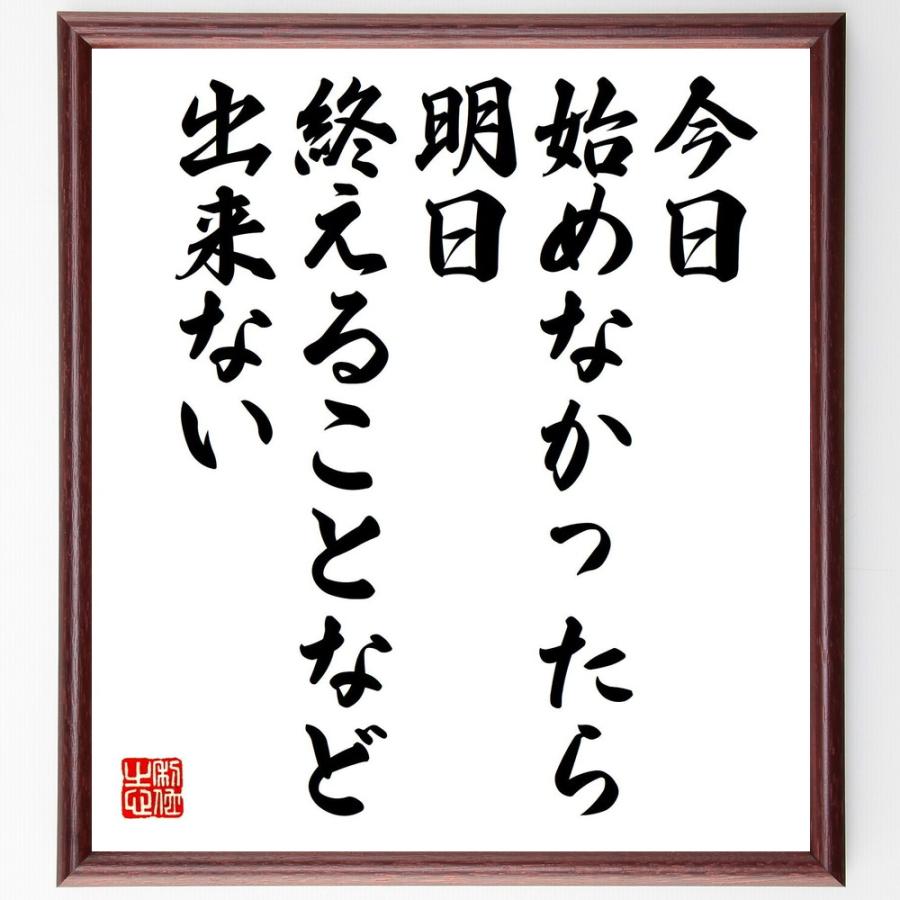 今日
始めなかったら
明日
終えることなど
出来ない